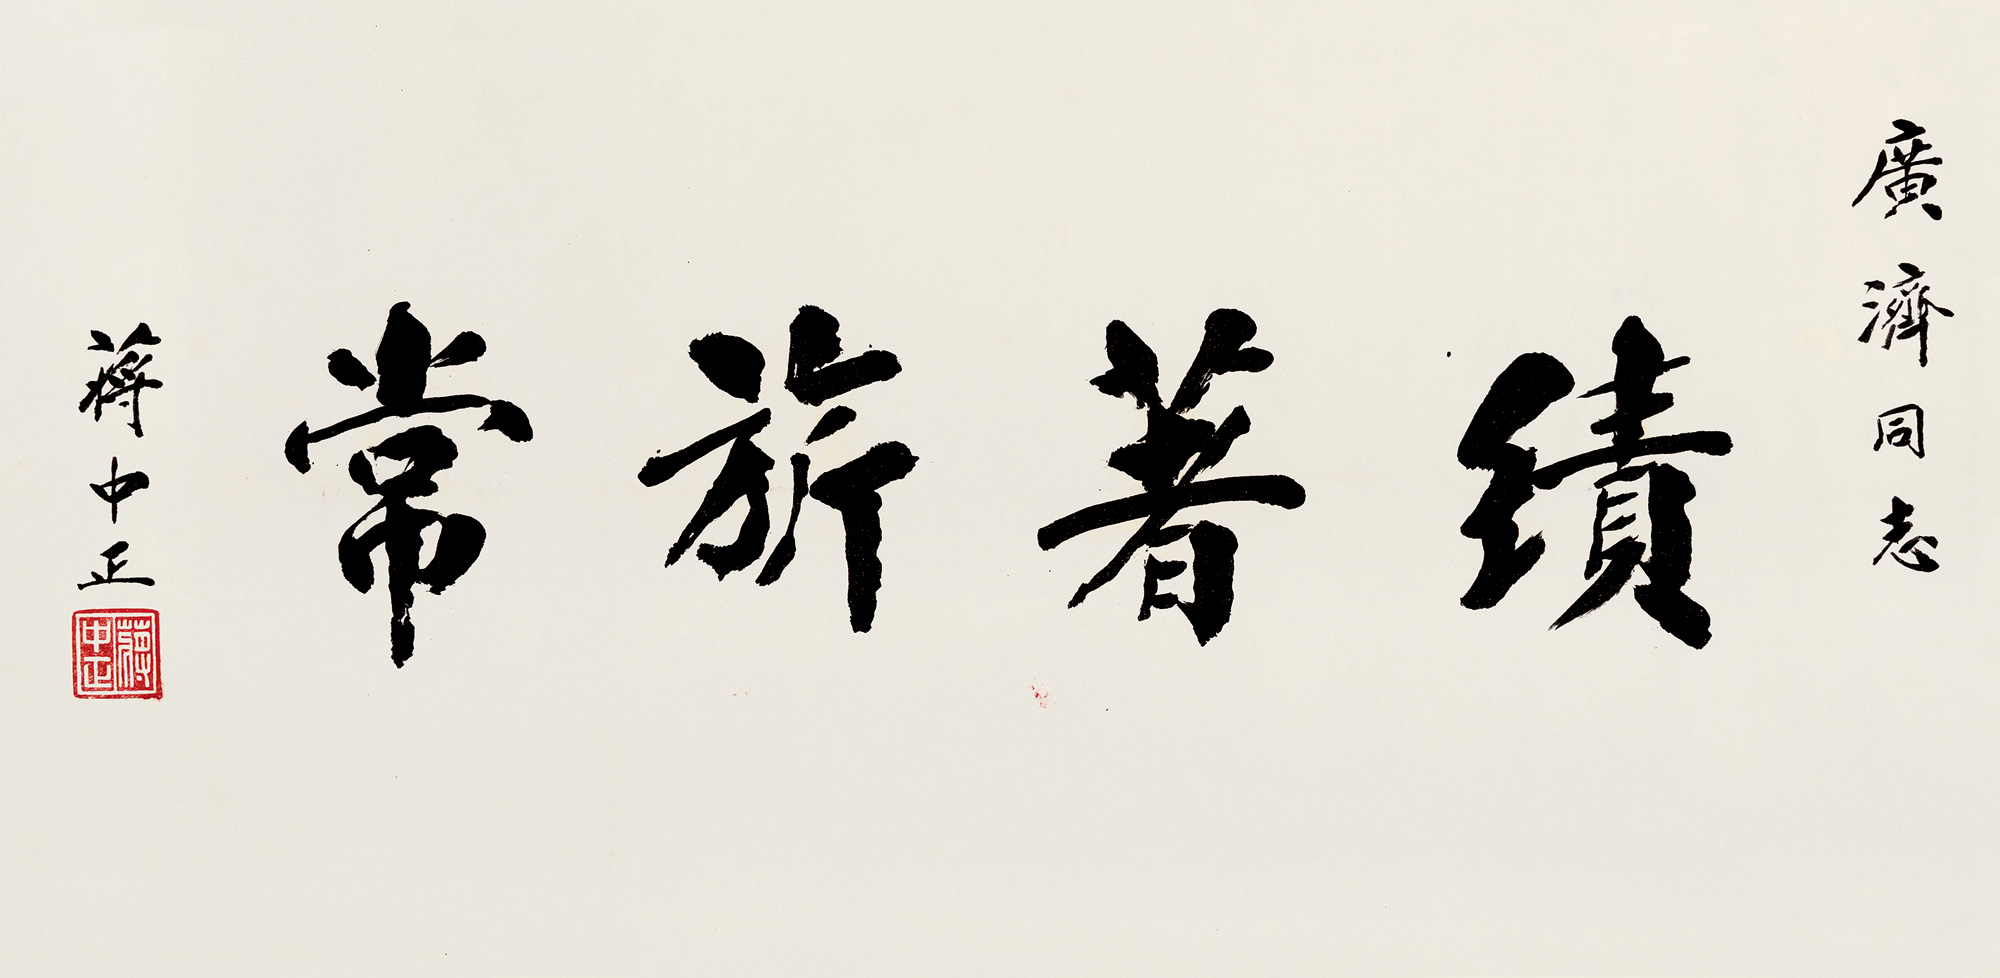 廣濟同志
績著旂常
蔣中正
蔣中正